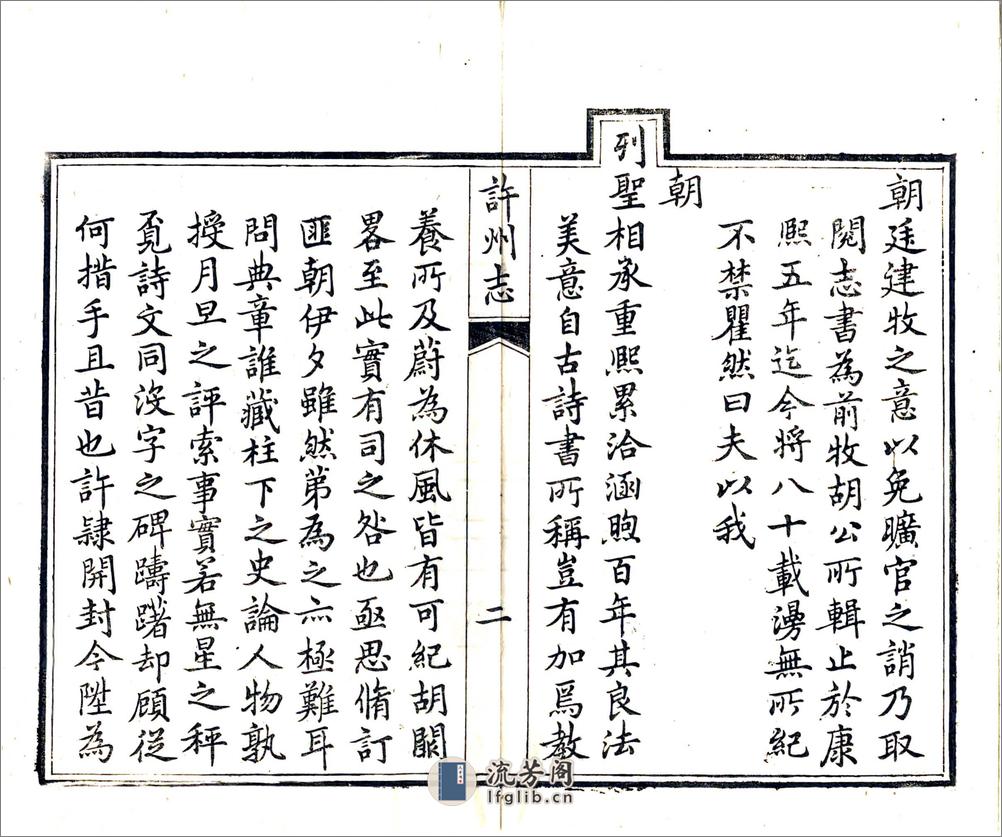 朝廷建牧之意以免曠官之誚乃取
閱志書為前牧胡公所輯止於康
熙五年迄今將八十載漫無所紀
不禁瞿然曰夫以我
朝
列聖相承重熙累洽涵煦百年其良法
美意自古詩書所稱豈有加焉教
許州志
二
養所及蔚為休風皆有可紀胡闕
畧至此實有司之咎也亟思脩訂
匪朝伊夕雖然第為之亦極難耳
問典章誰藏柱下之史論人物孰
授月旦之評索事實若無星之秤
覔詩文同沒字之碑躊躇却顧從
何措手且昔也許隷開封今陞為
流芳阁
lfglib.cn